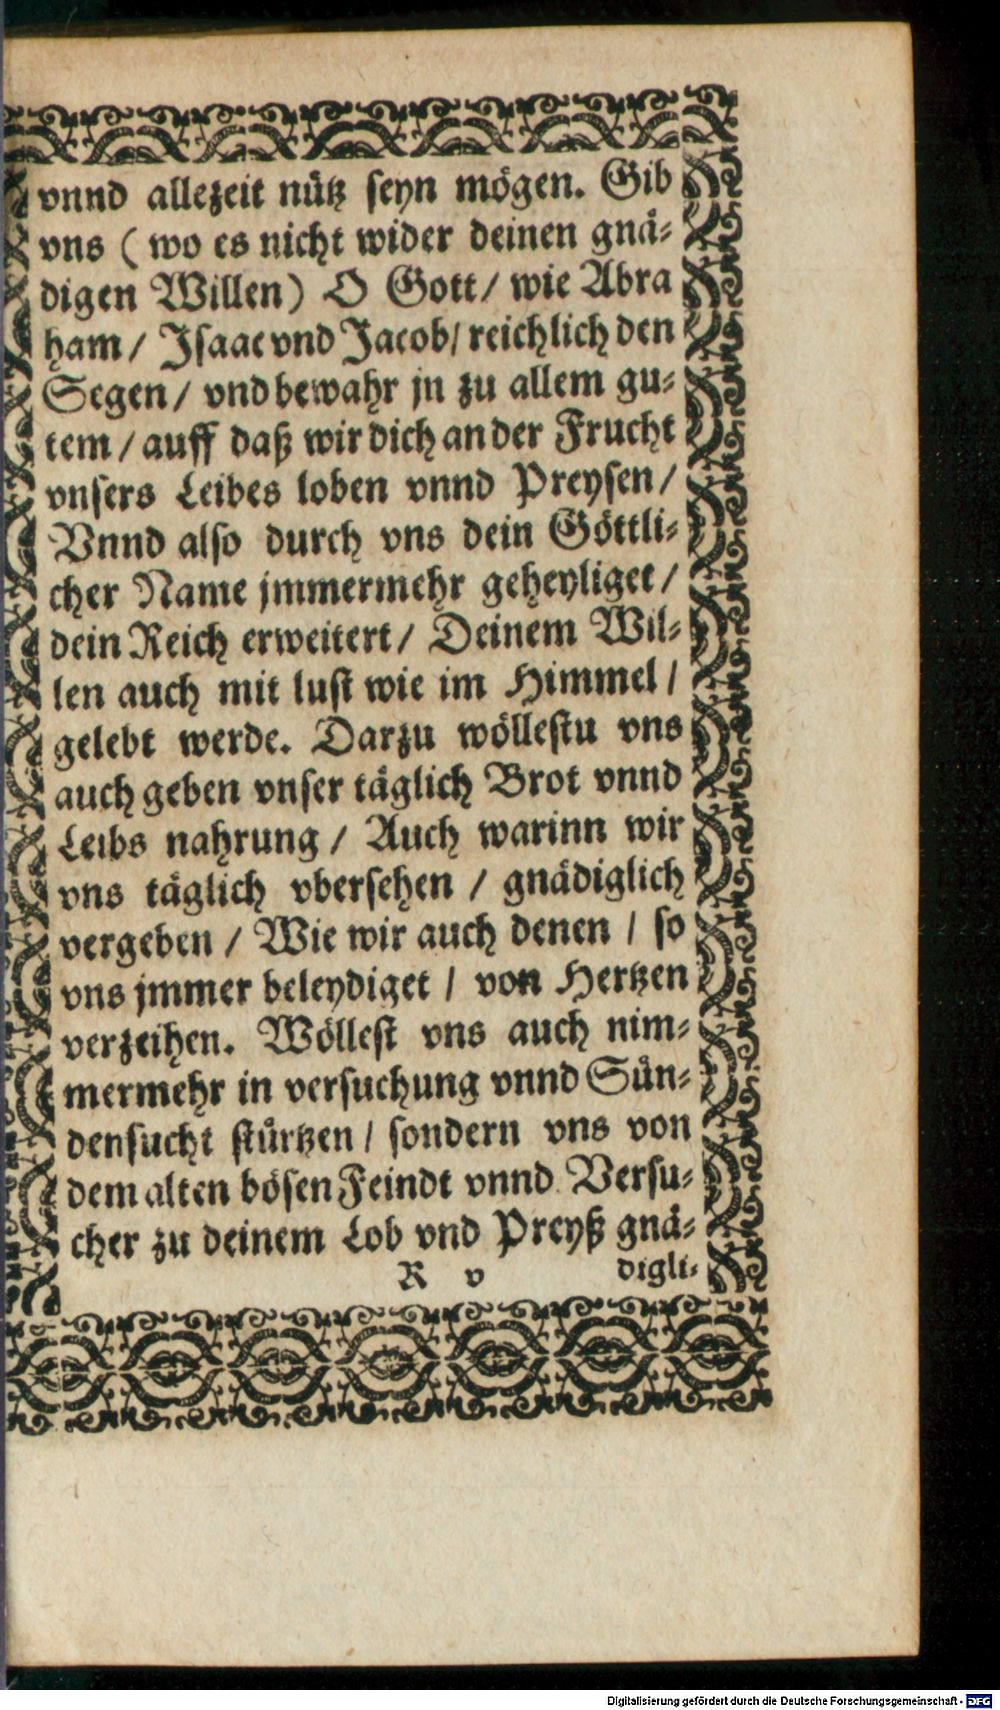 vnnd allezeit nütz seyn mögen. Gib
vns ( wo es nicht wider deinen gnä-
digen Willen) O Gott/ wie Abra
ham/ Isaac vnd Jacob/ reichlich den
Segen/ vnd bewahr jn zu allem gu-
tem/ auff daß wir dich an der Frucht
vnsers Leibes loben vnnd Preysen/
Vnnd also durch vns dein Göttli-
cher Name jmmermehr geheyliget/
dein Reich erweitert/ Deinem Wil-
len auch mit lust wie im Himmel/
gelebt werde. Darzu wöllestu vns
auch geben vnser täglich Brot vnnd
Leibs nahrung/ Auch warinn wir
vns täglich vbersehen / gnädiglich
vergeben / Wie wir auch denen / so
vns jmmer beleydiget / von Hertzen
verzeihen. Wöllest vns auch nim-
mermehr in versuchung vnnd Sün-
densucht stürtzen / sondern vns von
dem alten bösen Feindt vnnd Versu-
cher zu deinem Lob vnd Preyß gnä-
R v digli-
Digitalisierung gefördert durch die Deutsche Forschungsgemeinschaft - DFG